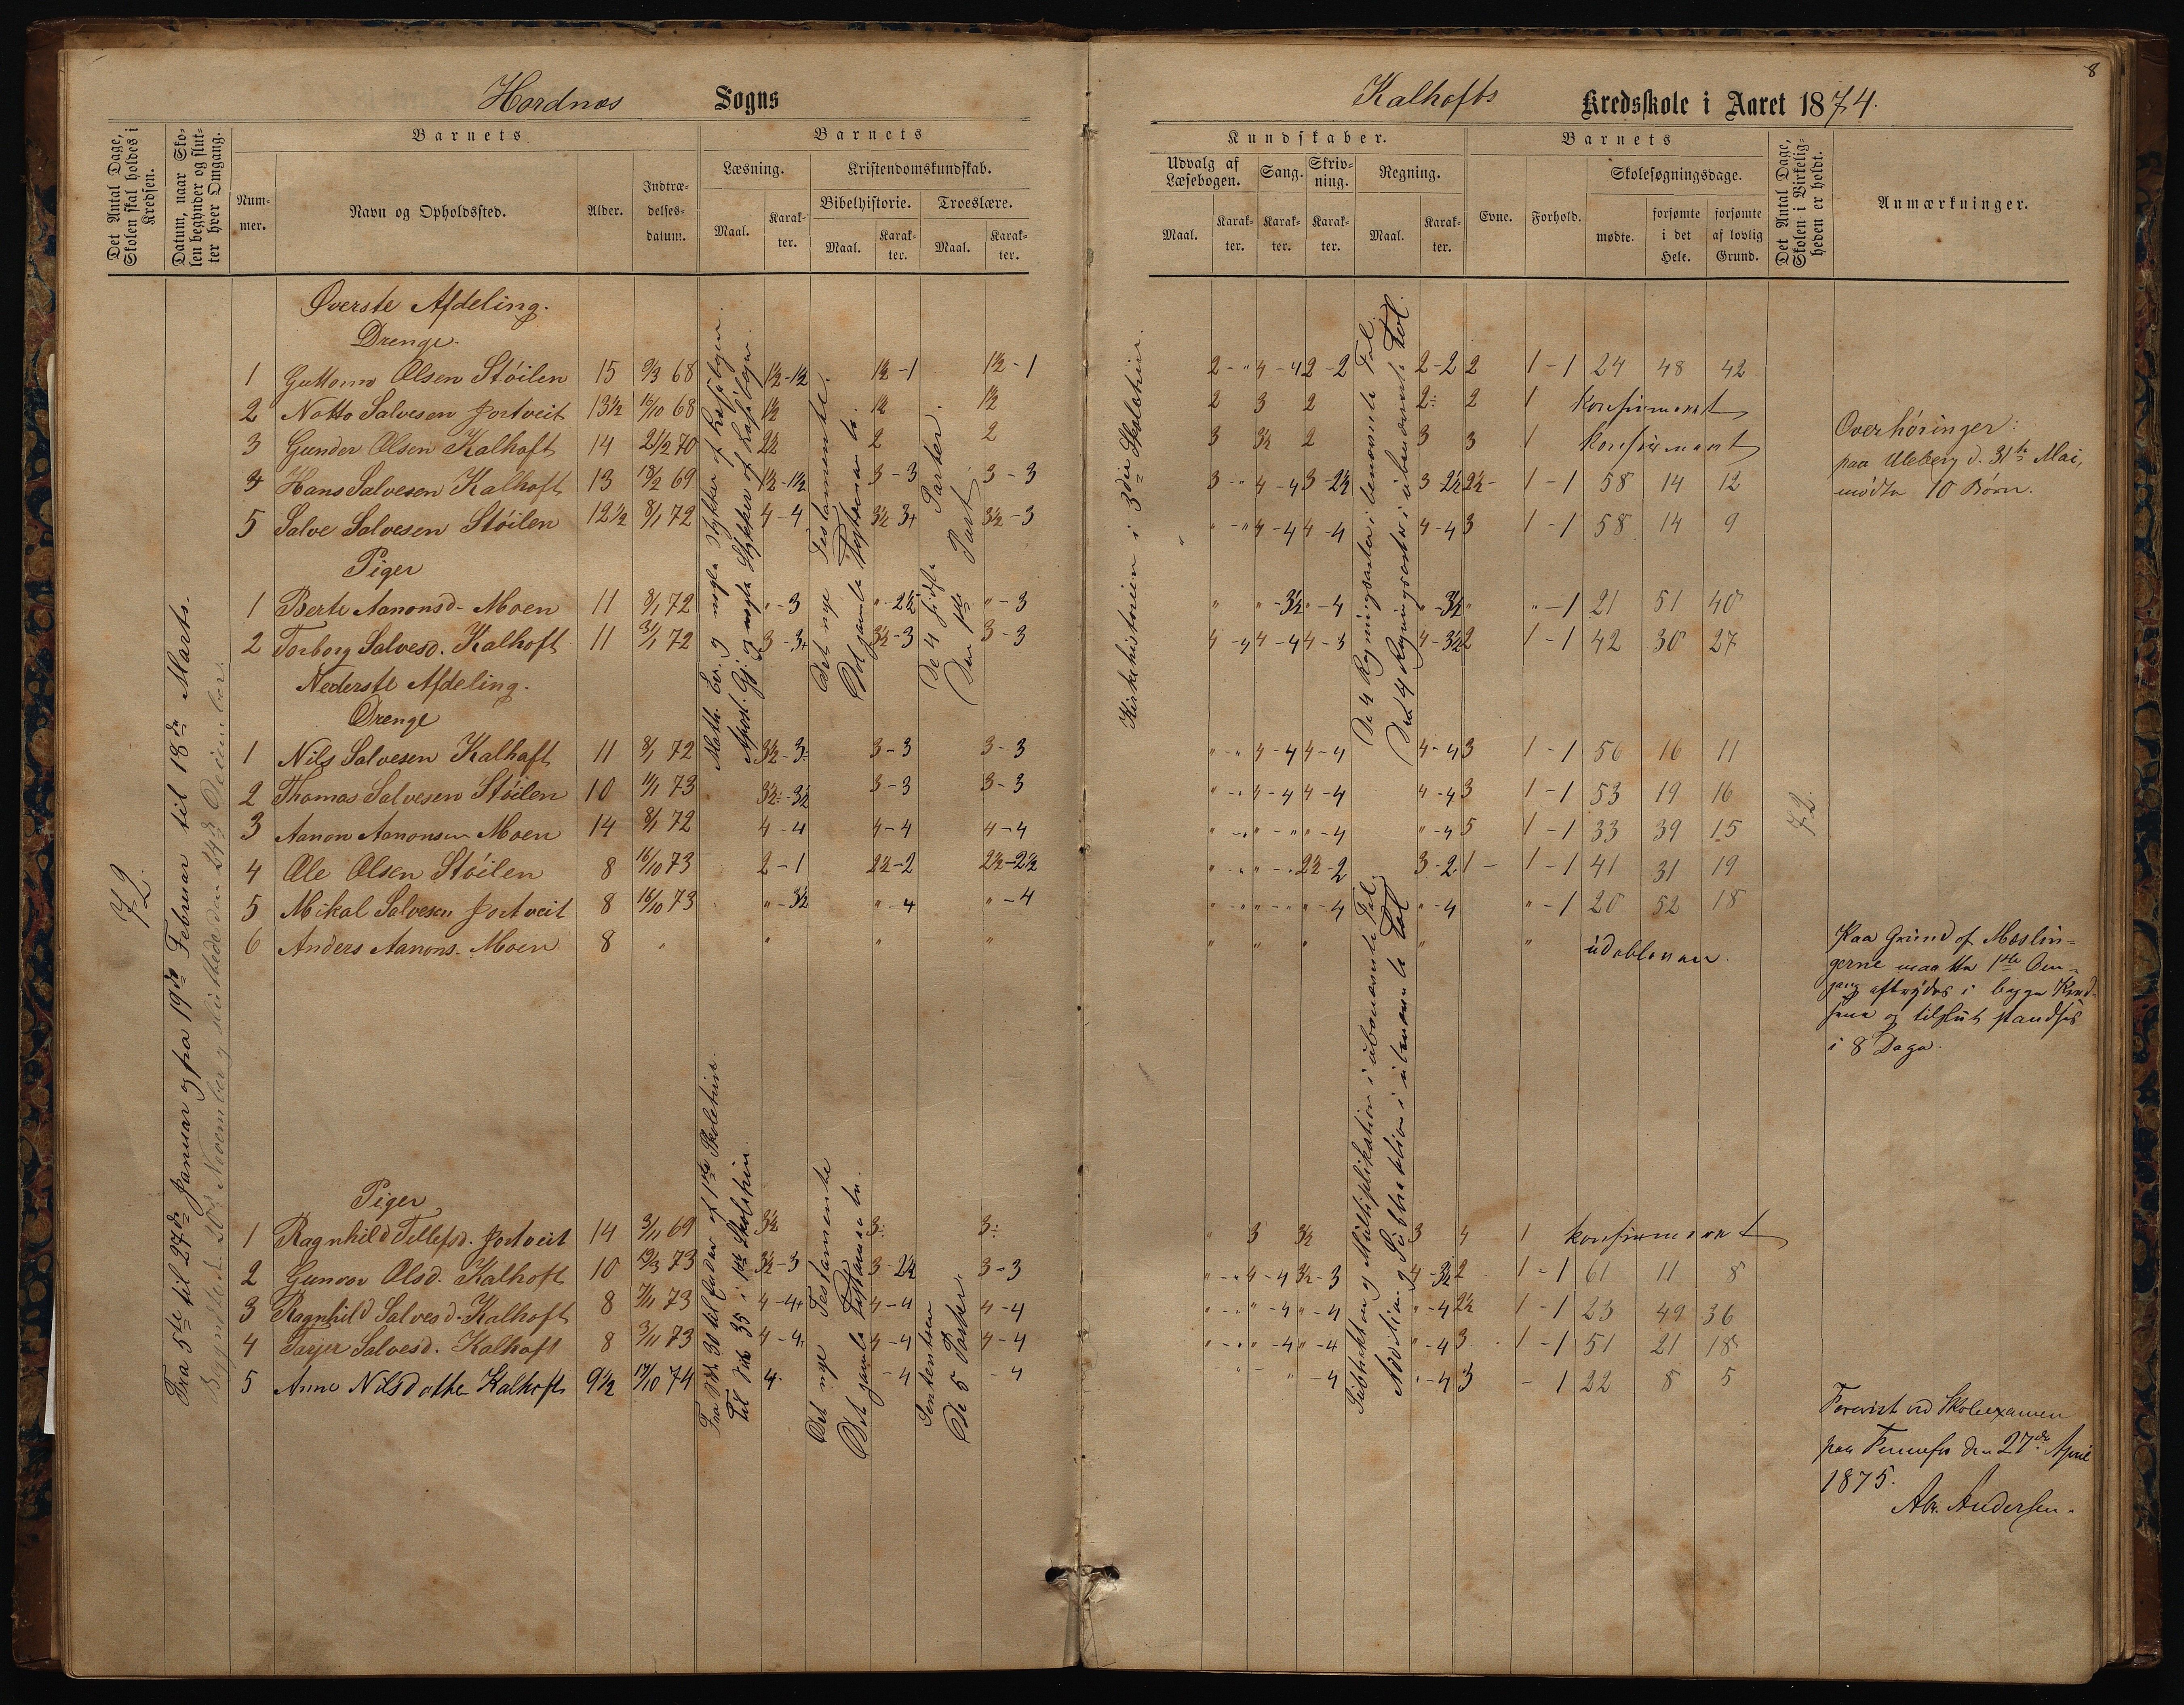 8
Hordnæs Sogns
Kalhofts Kredsskole i Aaret 1874.
Det Antal Dage, Skolen skal holdes i Kredsen.
Datum, naar Skolen begynder og slutter hver Omgang.
Barnets
Nummer.
Navn og Opholdssted.
Alder.
Indtrædelsesdatum.
Barnets
Læsning.
Maal.
Karakter.
Kristendomskundskab.
Bibelhistorie.
Maal.
Karakter.
Troeslære.
Maal.
Karakter.
Kundskaber.
Udvalg af Læsebogen.
Maal.
Karakter.
Sang.
Karakter.
Skrivning.
Karakter.
Regning.
Maal.
Karakter.
Barnets
Evne.
Forhold.
Skolesøgningsdage.
mødte.
forsømte i det Hele.
forsømte af lovlig Grund.
Det Antal Dage, Skolen i Virkeligheden er holdt.
Anmærkninger.
72.
Fra 5te til 27de Januar og fra 19de Februar til 18de Marts.
Begyndte den 20de November og sluttede den 24de December.
Øverste Afdeling.
Drenge.
1 Guttorm Olsen Støilen 15 9/3 68 1½-1½ 1½-1 1½-1 2-" 4-4 2-2 2-2 2 1-1 24 48 42
2 Notto Salvesen Jortveit 13½ 16/10 68 1½ 1½ 1½ 2 3 2 2÷ 2 1 konfirmeret
3 Gunder Olsen Kalhoft 14 21/2 70 2½ 2 2 3 3½ 2 3 3 1 konfirmeret
4 Hans Salvesen Kalhoft 13 18/2 69 1½-1½ 3-3 3-3 3-" 4-4 3-2½ 3-2½ 2½- 1-1 58 14 12
5 Salve Salvesen Støilen 12½ 8/1 72 4-4 3½-3+ 3½-3 "-" 4-4 4-4 4-4 3 1-1 58 14 9
Piger
1 Berte Aanonsd. Moen 11 8/1 72 "-3 "-2½ "-3 " "-3½ "-4 "-3½ " "-1 21 51 40
2 Torborg Salvesd. Kalhoft 11 3/1 72 3-3+ 3½-3 3-3 4-4 4-4 4-3 4-3½ 2 1-1 42 30 27
Nederste Afdeling.
Drenge
1 Nils Salvesen Kalhoft 11 8/1 72 3½-3÷ 3-3 3-3 "-" 4-4 4-4 4-4 3 1-1 56 16 11
2 Thomas Salvesen Støilen 10 11/1 73 3½÷-3½ 3-3 3-3 "-" 4-4 4-4 4-4 3 1-1 53 19 16
3 Aanon Aanonsen Moen 14 8/1 72 4-4 4-4 4-4 "-" "-" "-4 "-4 5 1-1 33 39 15
4 Ole Olsen Støilen 8 16/10 73 2-1 2½-2 2½-2½ "-" "-" 2½-2 3-2 1- 1-1 41 31 19
5 Mikal Salvesen Jortveit 8 16/10 73 "-3½ "-4 "-4 "-" "-" "-4 "-4 "-1 20 52 18
6 Anders Aanons. Moen 8 " " " " " " " " " udebleven.
Piger
1 Ragnhild Tellefsd. Jortveit 14 3/11 69 3½ 3÷ 3÷ " 3 3½ 3 4 1 konfirmeret
2 Gunvor Olsd. Kalhoft 10 19/3 73 3½-3 3-2½ 3-3 "-" 4-4 3½-3 4-3½ 2 1-1 61 11 8
3 Ragnhild Salvesd. Kalhoft 8 7/11 73 4-4+ 4-4 4-4 "-" "-4 "-4 "-4 2½ 1-1 23 49 36
4 Tarjer Salvesd. Kalhoft 8 3/11 73 4-4 4-4 4-4 "-" "-4 "-4 "-4 3 1-1 51 21 18
5 Anne Nilsdatter Kalhoft 9½ 19/10 74 4 -4 -4 "-4 "-4 3 -1 22 8 5
Math. Ev. og nogle Stykker af Læsebogen.
Apost. Gj. og nogle Stykker af Læsebogen.
Det nye Testamente.
Det gamle Testamente.
De 4 sidste Parter.
Den 1ste Part.
Kirkehistorien i 3die Skoletrin.
De 4 Regningsarter i benævnte Tal.
De 4 Regningsarter i ubenævnte Tal.
Fra Stk 30 til Enden af 1ste Skoletrin.
Til Stk 35 i 1ste Skoletrin.
Det nye Testamente
Det gamle Testamente.
Sententsen
De 5 Parter.
Subtraktion og Multiplikation i ubenævnte Tal.
Addition og Subtraktion i ubenævnte Tal
72.
Overhøringer:
paa Uleberg d. 31te Mai,
mødte 10 Børn.
Paa Grund af Mæslin-
gerne maatte 1ste Om-
gang afbrydes i begge Kred-
sene og tilslut standses
i 8 Dage.
Forevist ved Skoleexamen
paa Fennefos den 27de April
1875.
Abr. Andersen.